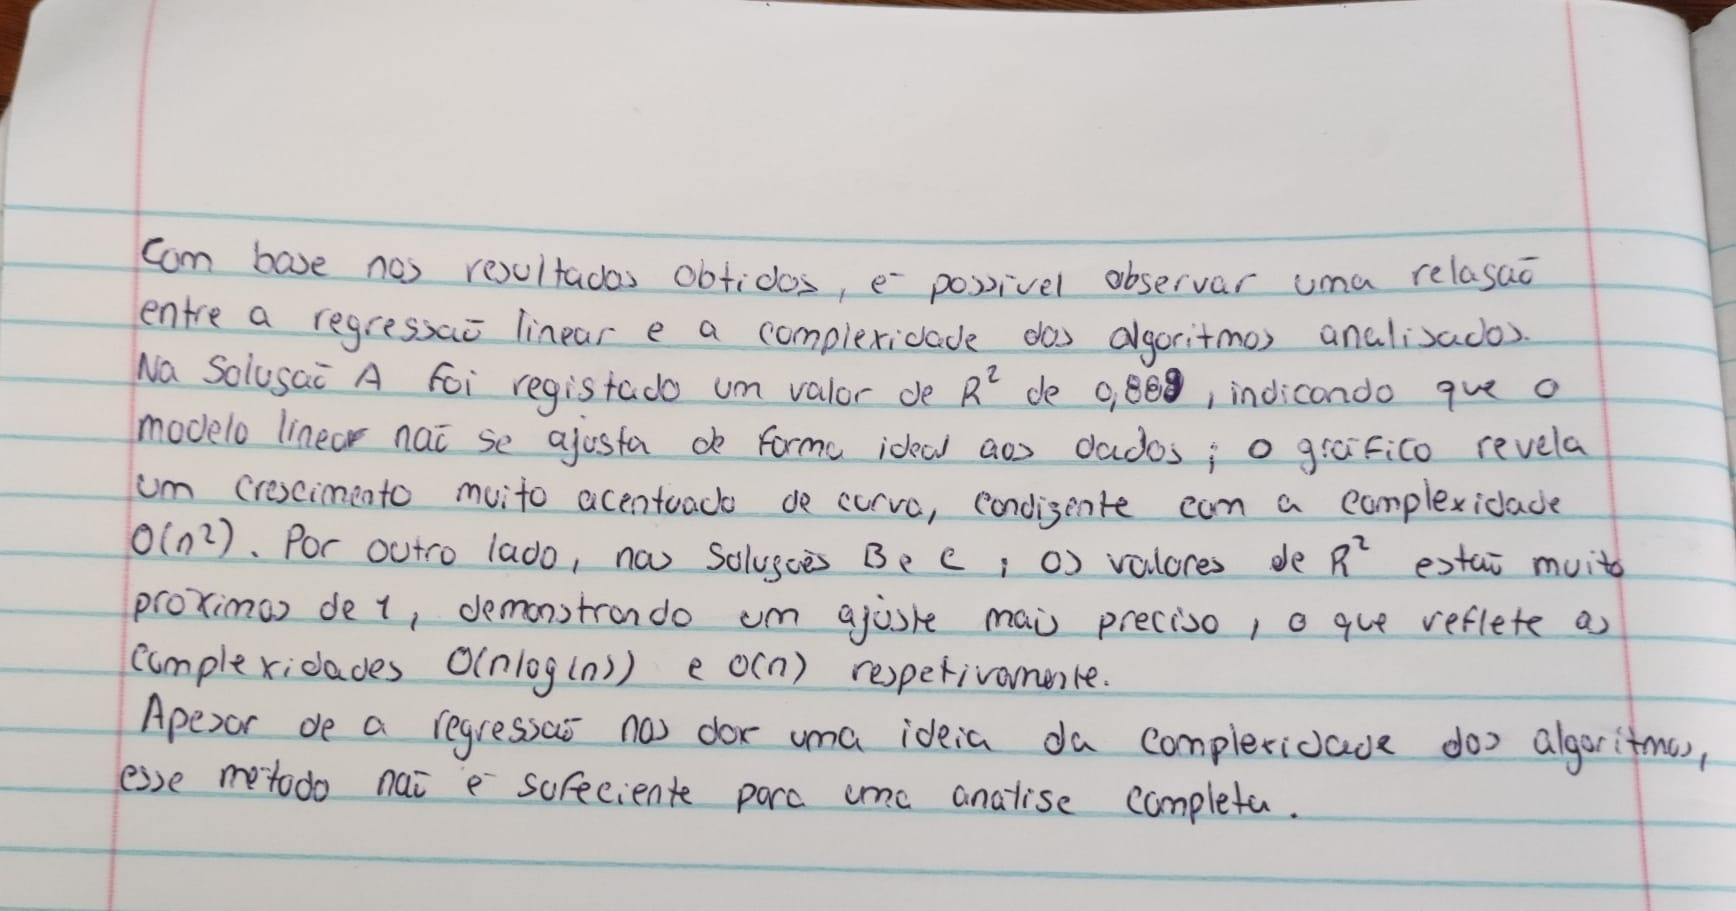 Com base nos resultados obtidos, é possivel observar uma relasão
entre a regressão linear e a complexidade dos algoritmos analisados.
Na Solusão A foi registado um valor de R² de 0,889, indicando que o
modelo linear não se ajusta de forma ideal aos dados; o gráfico revela
um crescimento muito acentuado de curva, condizente com a complexidade
O(n²). Por outro lado, nas Solusões B e C, os valores de R² estão muito
próximos de 1, demonstrando um ajuste mais preciso, o que reflete as
complexidades O(nlog(n)) e O(n) respetivamente.
Apesar de a regressão nos dar uma ideia da complexidade dos algoritmos,
esse método não é sufeciente para uma análise completa.